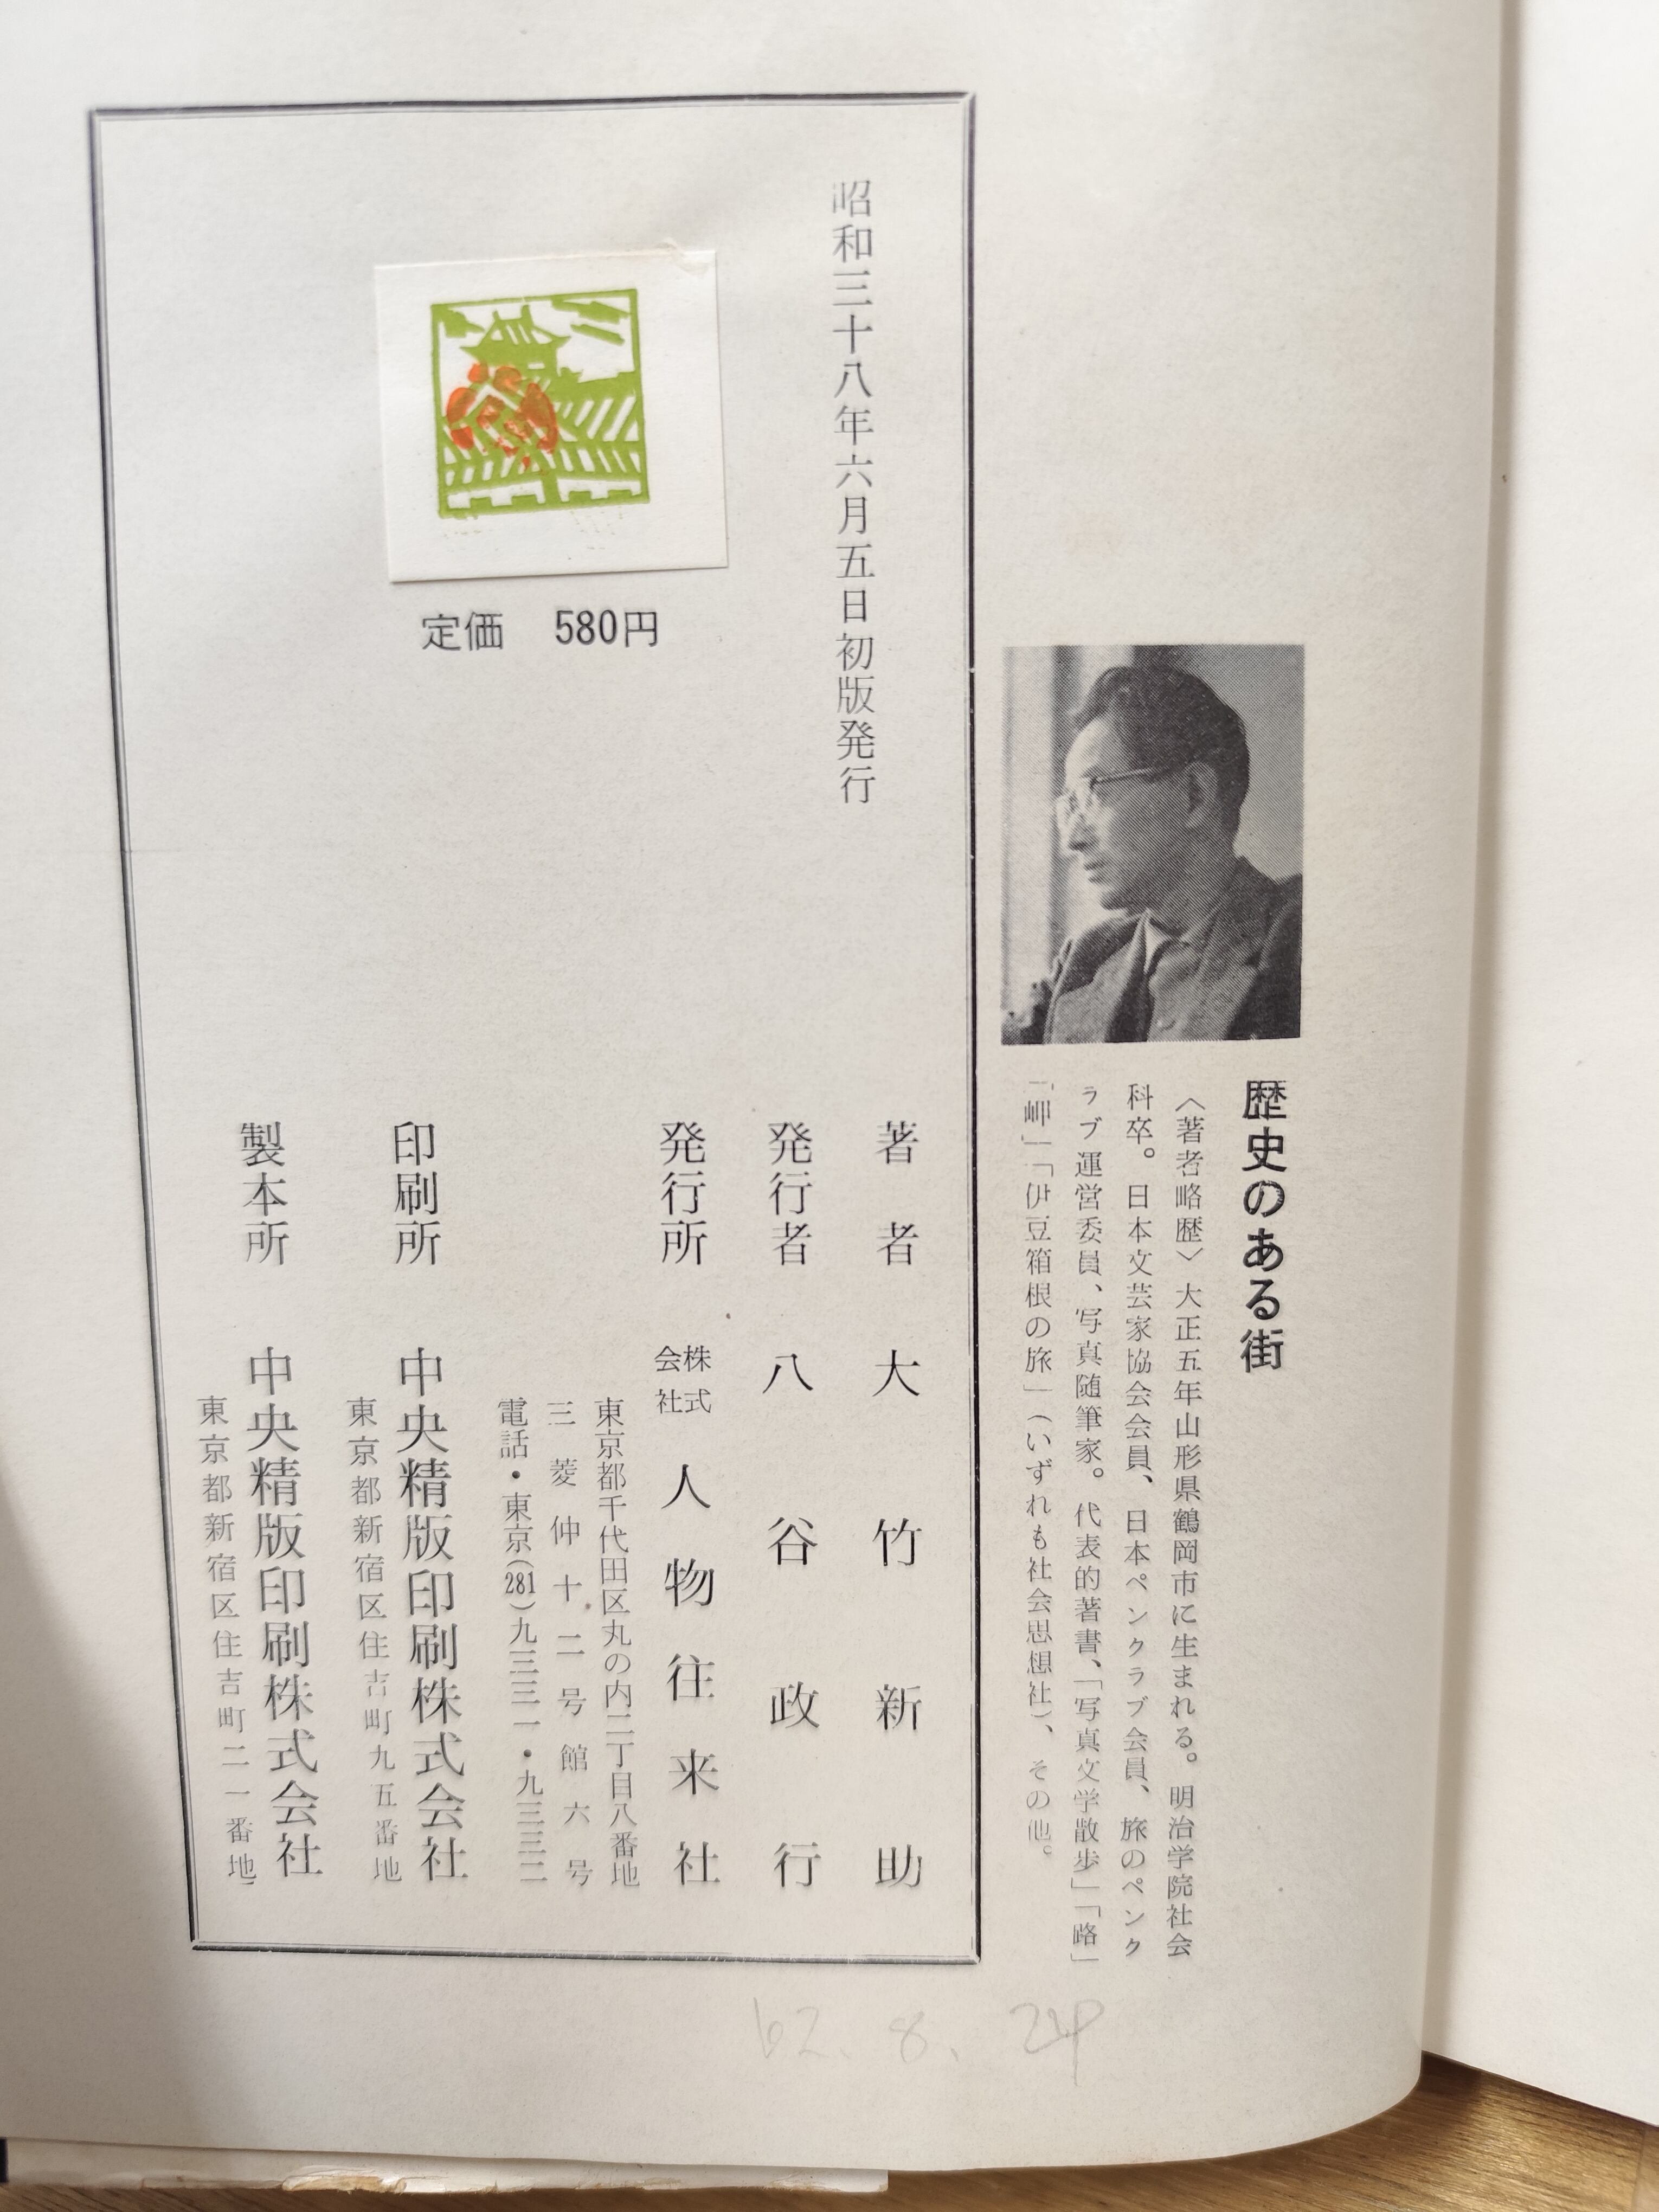 歴史のある街
〈著者略歴〉大正五年山形県鶴岡市に生まれる。明治学院社会
科卒。日本文芸家協会会員、日本ペンクラブ会員、旅のペンク
ラブ運営委員、写真随筆家。代表的著書、「写真文学散歩」「路」
「岬」「伊豆箱根の旅」（いずれも社会思想社）、その他。
昭和三十八年六月五日初版発行
定価 580円
著者 大竹新助
発行者 八谷政行
発行所 株式会社 人物往来社
東京都千代田区丸の内二丁目八番地
三菱仲十二号館六号
電話・東京(281)九三三一・九三三二
印刷所 中央精版印刷株式会社
東京都新宿区住吉町九五番地
製本所 中央精版印刷株式会社
東京都新宿区住吉町二一番地
62.8.24